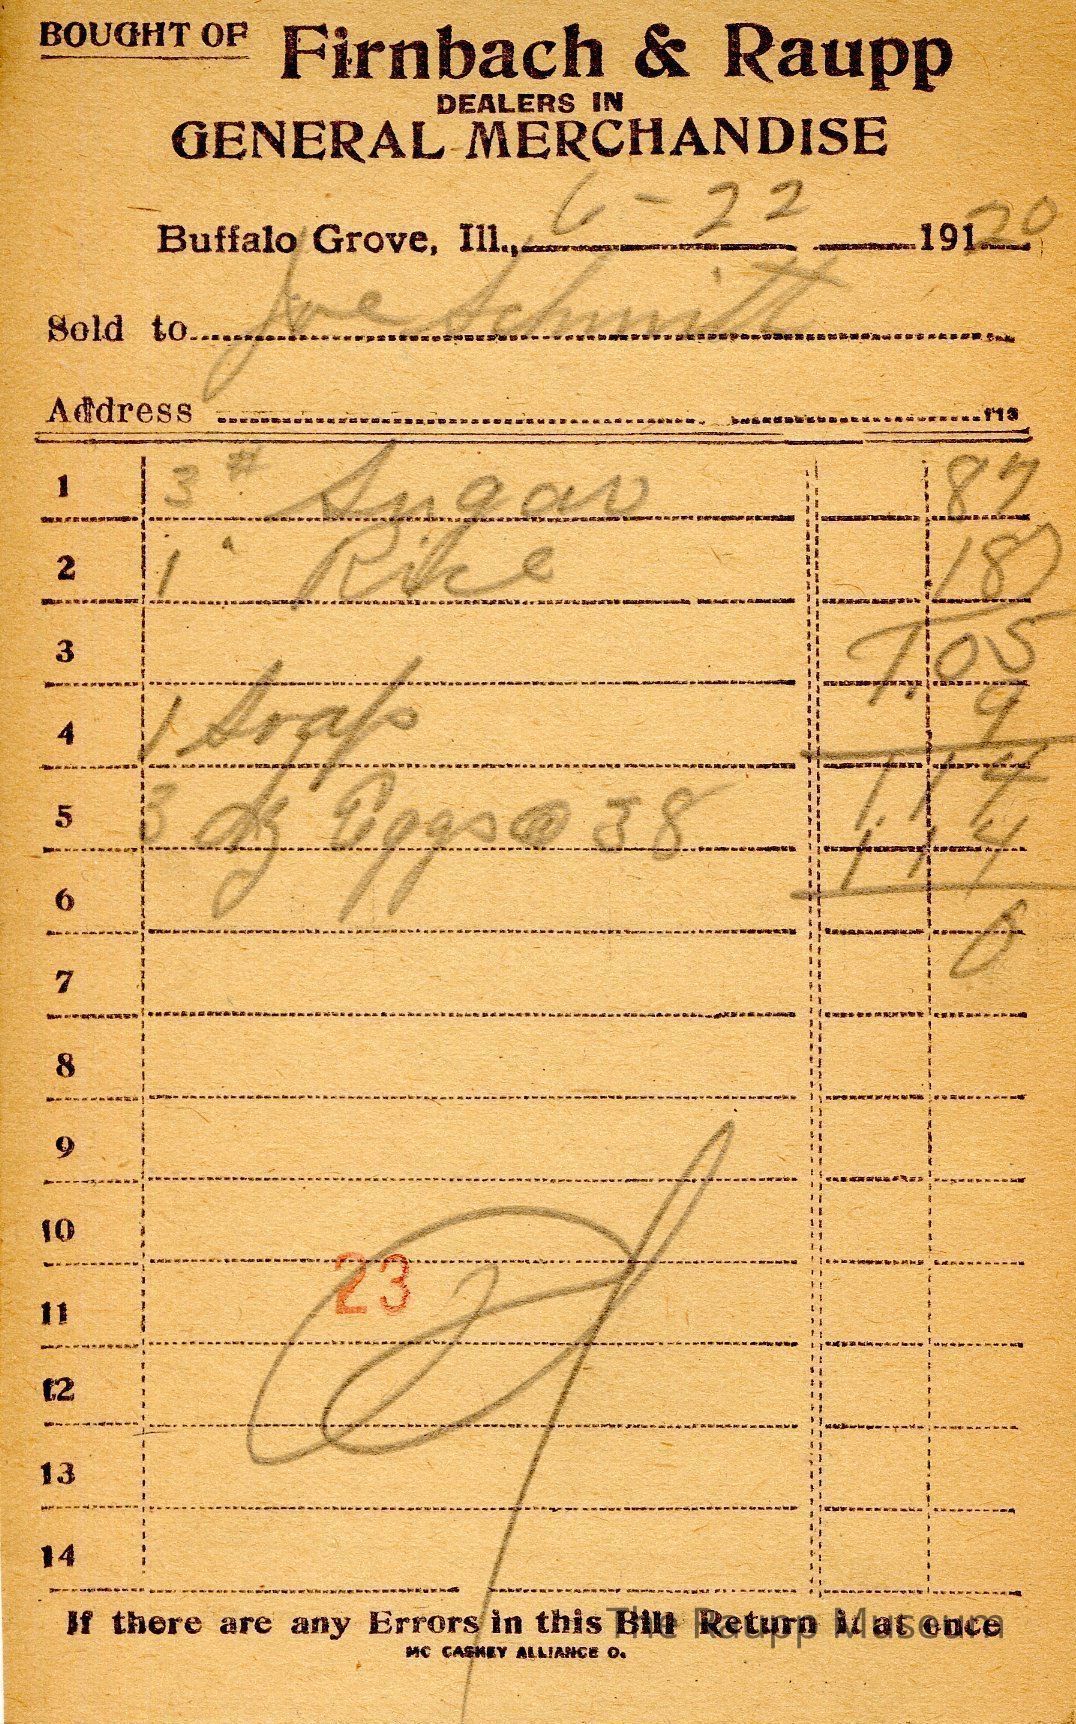 BOUGHT OF Firnbach & Raupp
DEALERS IN
GENERAL MERCHANDISE
Buffalo Grove, Ill., 6-22 191 20
Sold to Joe Schmitt
Address
1 3 # Sugar 87
2 1 " Rice 18
3 1.05
4 1 Soap 9
5 3 dz Eggs @ 38 1 14
1 14
6 0
7
8
9
10
23
11
12
13
14
If there are any Errors in this Bill Return it at once
The Raupp Museum
MC CASKEY ALLIANCE O.